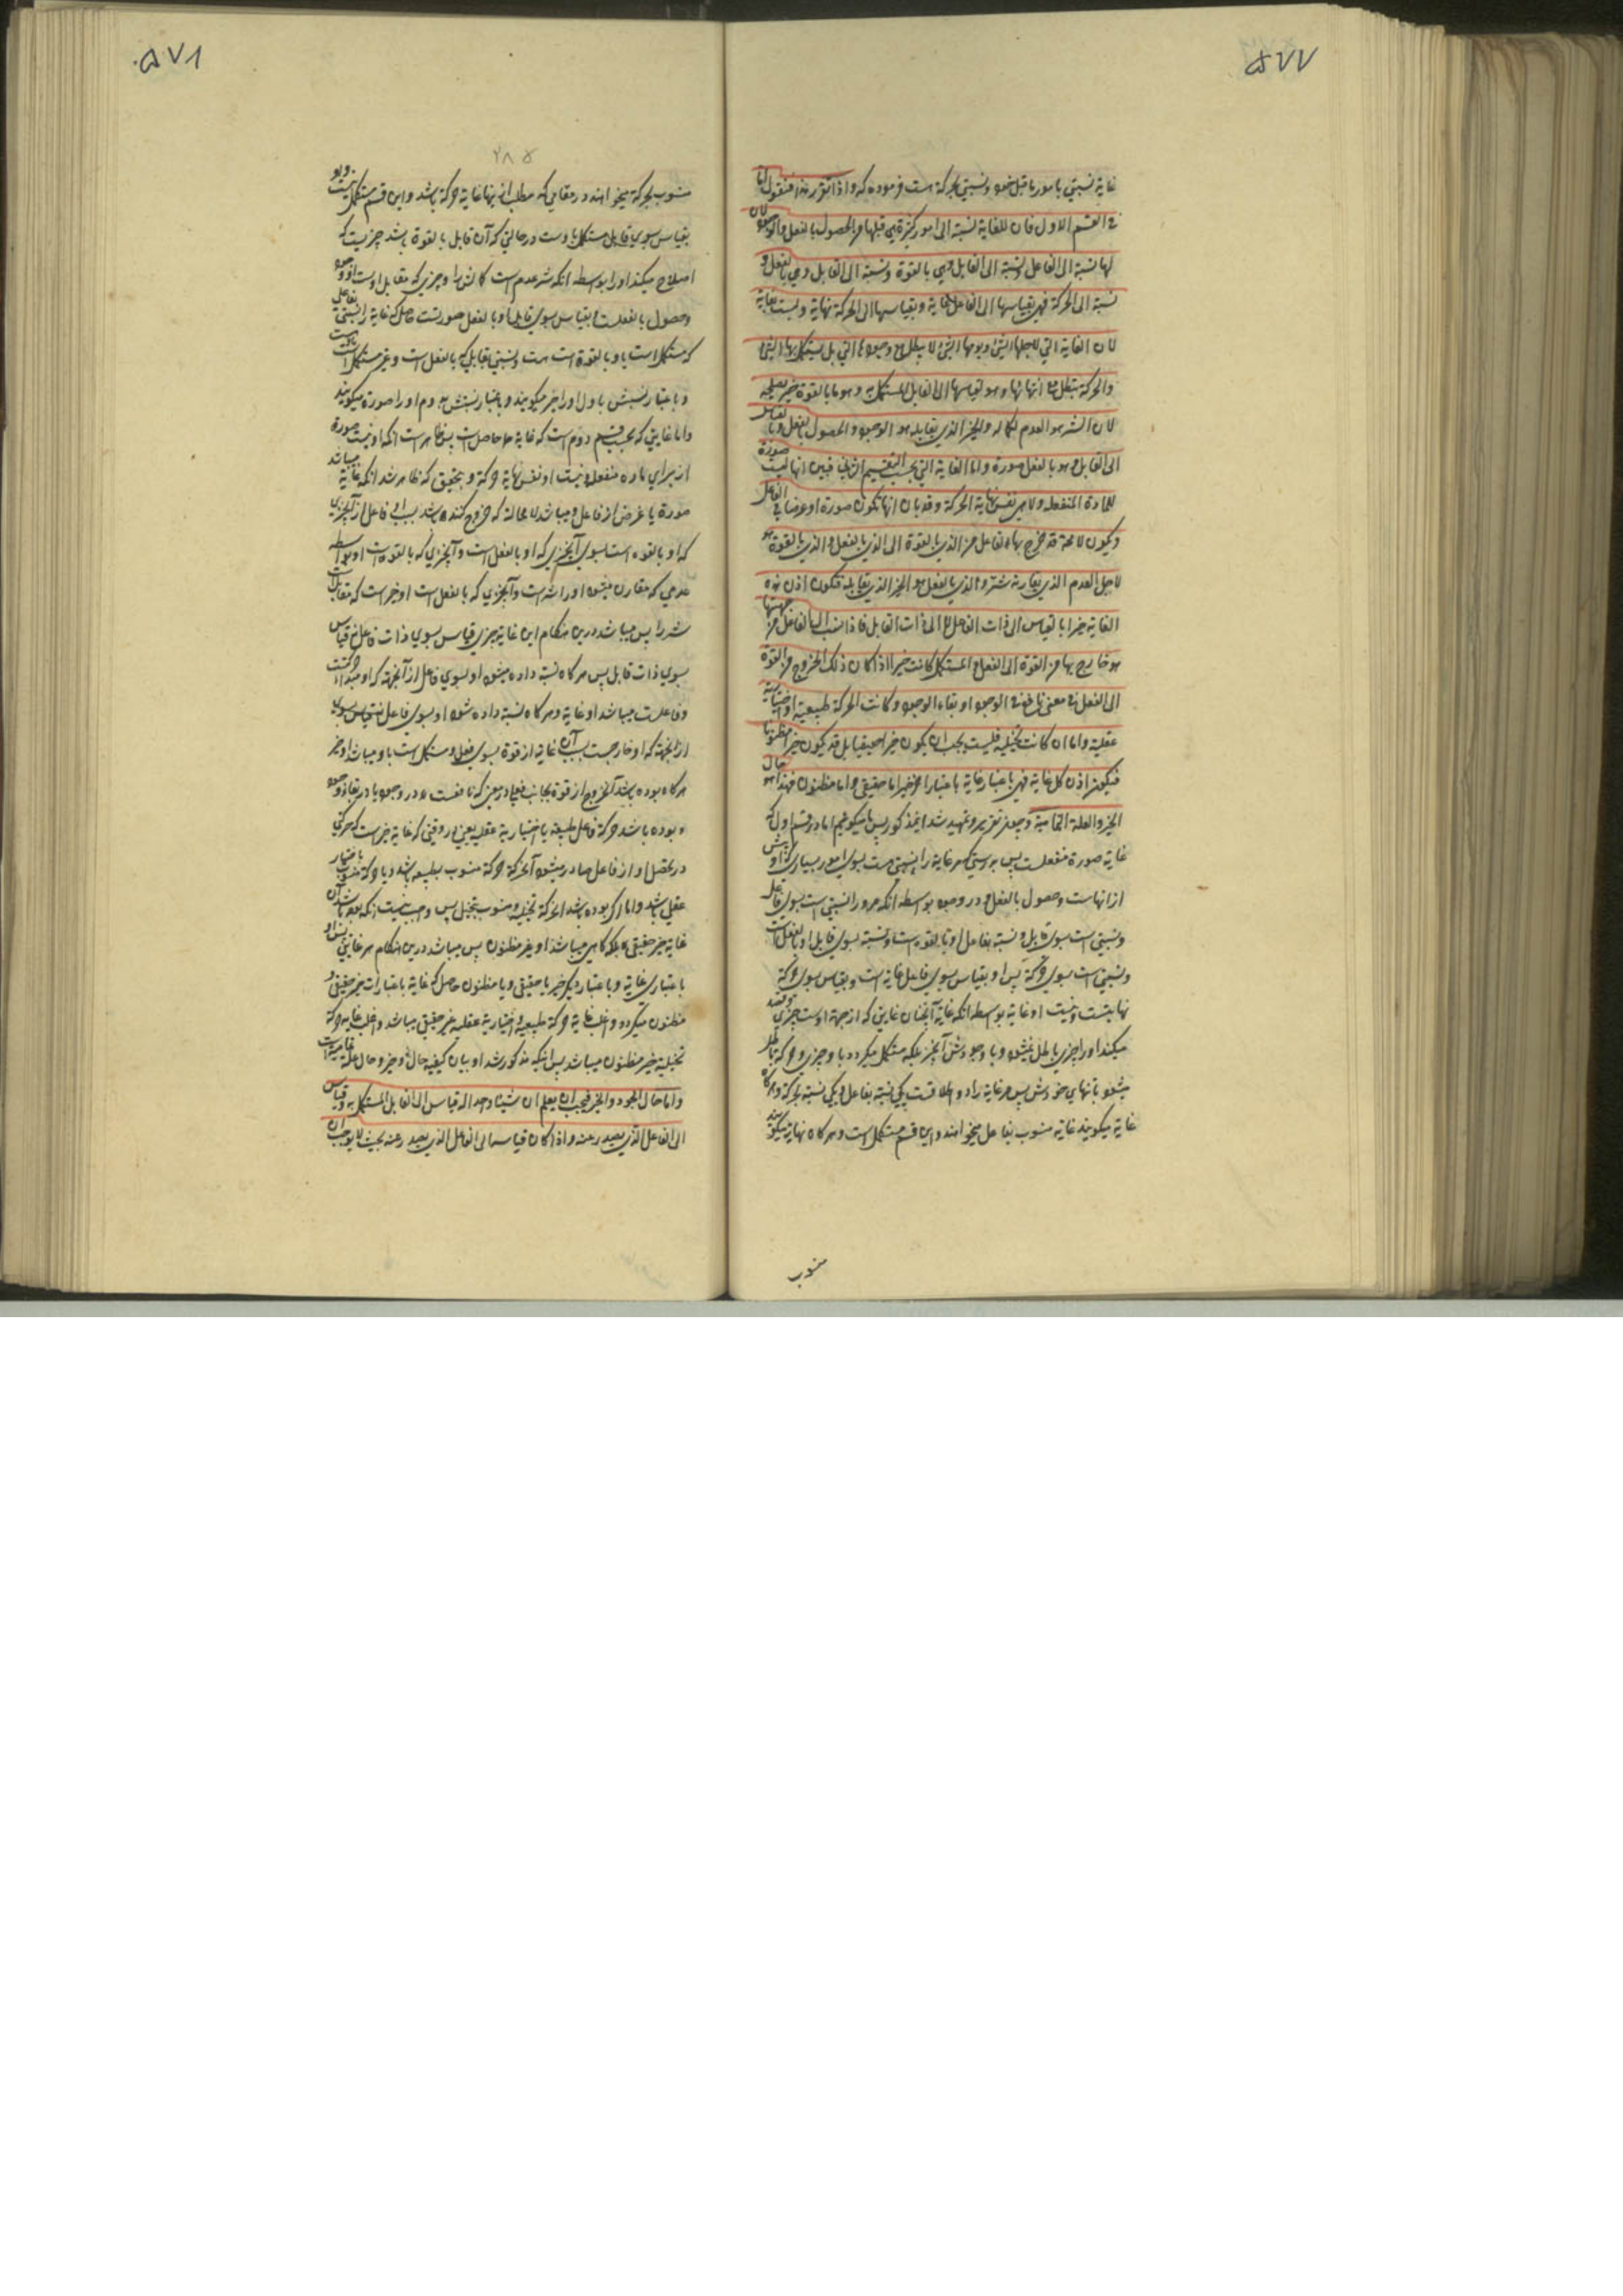 ۵۷۷
غایة نسبتی بامور ما قبل خود و نسبتی بحرکة است فرموده که و اذا تقرر هذا فنقول اما
فی القسم الاول فان للغایة نسبة الی امور کثیرة هی قبلها فی الحصول بالفعل و الوجود لان
لها نسبة الی الفاعل و نسبة الی القابل و هی بالقوة و نسبة الی القابل و هی بالفعل و
نسبة الی الحرکة فهی بقیاسها الی الفاعل غایة و بقیاسها الی الحرکة نهایة و لیست بغایة
لان الغایة التی لاجلها الشئ و یومها الشئ لا یبطل مع وجودها الشئ بل یستکمل بها الشئ
و الحرکة تبطل مع انتهائها و هو بقیاسها الی القابل المستکمل به و هو ما بالقوة خیر یصلحه
لان الشر هو العدم لکماله و الخیر الذی یقابله هو الوجود و الحصول بالفعل و بالقیاس
الی القابل و هو بالفعل صورة و اما الغایة التی بحسب التقسیم الثانی فبین انها لیست صورة
للمادة المنفعلة و لا هی نفس نهایة الحرکة و قد بان انها تکون صورة او عرضا فی الفاعل
و یکون لا محالة قد خرج بها الفاعل من الذی بالقوة الی الذی بالفعل و الذی بالقوة هو
لاجل العدم الذی یقارنه شر و الذی بالفعل هو الخیر الذی یقابله فتکون اذن هذه
الغایة خیرا بالقیاس الی ذات الفاعل لا الی ذات القابل فاذا نسبت الی الفاعل من جهة ما
هو خارج بها من القوة الی الفعل و المستکمل کانت خیرا اذا کان ذلک الخروج من القوة
الی الفعل فی معنی نافع فی الوجود او بقاء الوجود و کانت الحرکة طبیعیة او اختیاریة
عقلیة و اما ان کانت تخیلیة فلیست یجب ان یکون خیرا حقیقیا بل قد یکون خیرا مظنونا
فیکون اذن کل غایة فهی باعتبار غایة و باعتبار اخر خیر اما حقیقی و اما مظنون فهذا هو حال
الخیر و العلة التمامیة و چون تقریر و تمهید شد اینمذکور پس ما میکوئیم اما در قسم اول که
غایة صورة منفعلست پس بدرستیکه مر غایة را نسبتی هست بسوی امور بسیاری که او پیش
از انهاست و حصول بالفعل در وجود بواسطه انکه مرو را نسبتی است بسوی فاعل
و نسبتی است بسوی قابل و نسبة بفاعل او بالقوه است و نسبة بسوی قابل او بالفعل است
و نسبتی است بسوی حرکة پس او بقیاس بسوی فاعل غایة است و بقیاس بسوی حرکة
نهایتست و نیست او غایة بواسطه انکه غایة آنچنان غایتی که از جهة اوست چیزی و قصد
میکند او را چیزی باطل نمیشود با وجودش آنچیز بلکه مستکمل میکردد باو چیزی و حرکة باطل
میشود بانتهای خودش پس مر غایة را دو اطلاقست یکی نسبة بفاعل و یکی نسبة بحرکة و هرکاه
غایة میکویند غایة منسوب بفاعل میخواهند و این قسم مستکمل است و هرکاه نهایة میکویند
منسوب
۵۷۸
۲۸۵
منسوب بحرکة میخواهند در مقامی که مطلب از نهایة غایة حرکة باشد و این قسم مستکمل نیست و او
بقیاس بسوی قابل مستکمل باوست در حالتی که آن قابل بالقوة باشد چیزیست که
اصلاح میکند او را بواسطه انکه شر عدم است کمالش را و چیزی که مقابل اوست او وجود
و حصول بالفعلست و بقیاس بسوی قابل او بالفعل صورتست حاصل که غایة را نسبتی بفاعلی
که مستکمل است باو بالقوة است هست و نسبتی بقابل که بالفعل است و غیر مستکمل است هست
و باعتبار نسبتش باول او را خیر میکویند و باعتبار نسبتش بدوم او را صورة میکویند
و اما غایتی که بحسب قسم دوم است که غایة حاصل است پس ظاهر است انکه او نیست صورة
از برای ماده منفعله و نیست او نفس نهایة حرکة و بتحقیق که ظاهر شد انکه غایة میباشد
صورة یا عرض از فاعل و میباشد لا محالة که خروج کننده باشد بسبب او فاعل از آنچیزی
که او بالقوه است بسوی آنچیزی که او بالفعل است و آنچیزی که بالقوه است او بواسطه
عدمی که مقارن میشود او را شر است و آنچیزی که بالفعل است او خیر است که مقابل است
شر را پس میباشد درین هنکام این غایة چیزی بقیاس بسوی ذات فاعل نه بقیاس
بسوی ذات قابل پس هرکاه نسبة داده میشود او بسوی فاعل از آنجهة که او مبدء حرکتست
و فاعلست میباشد او غایة و هرکاه نسبة داده شود او بسوی فاعل بقیاس بسوی
از انجهة که او خارجست بسبب آن غایة از قوة بسوی فعل و مستکمل است باو میباشد او خیر
هرکاه بوده باشد آنخروج از قوة بجانب فعل در معنی که نافعست در وجود یا در بقاء وجود
و بوده باشد حرکة فاعل طبیعیة یا اختیاریة عقلیه یعنی در وقتی که غایة خیر است که حرکتی
در تحصیل او از فاعل صادر میشود آنحرکة حرکة منسوب بطبیعه باشد و یا حرکة منسوب باختیار
عقلی باشد و اما اکر بوده باشد انحرکة تخیلیه و منسوب بتخیل پس واجب نیست انکه بوده باشد آن
غایة خیر حقیقی بلکه کاهی میباشد او خیر مظنون پس میباشد درین هنکام هر غایتی پس او
باعتباری غایة و باعتبار دیکر خیر یا حقیقی و یا مظنون حاصل که غایة باعتبارات خیر حقیقی و
مظنون میکردد و اغلب غایة حرکة طبیعیه و اختیاریة عقلیه خیر حقیقی میباشد و اغلب غایة حرکة
تخیلیه خیر مظنون میباشد پس اینکه مذکور شد او بیان کیفیة حال خیر و حال علة تمامیه است
و اما حال الجود و الخیر فیجب ان یعلم ان شیئا واحدا له قیاس الی القابل المستکمل به و قیاس
الی الفاعل الذی یصدر عنه و اذا کان قیاسه الی الفاعل الذی یصدر عنه بحیث لا یوجب ان